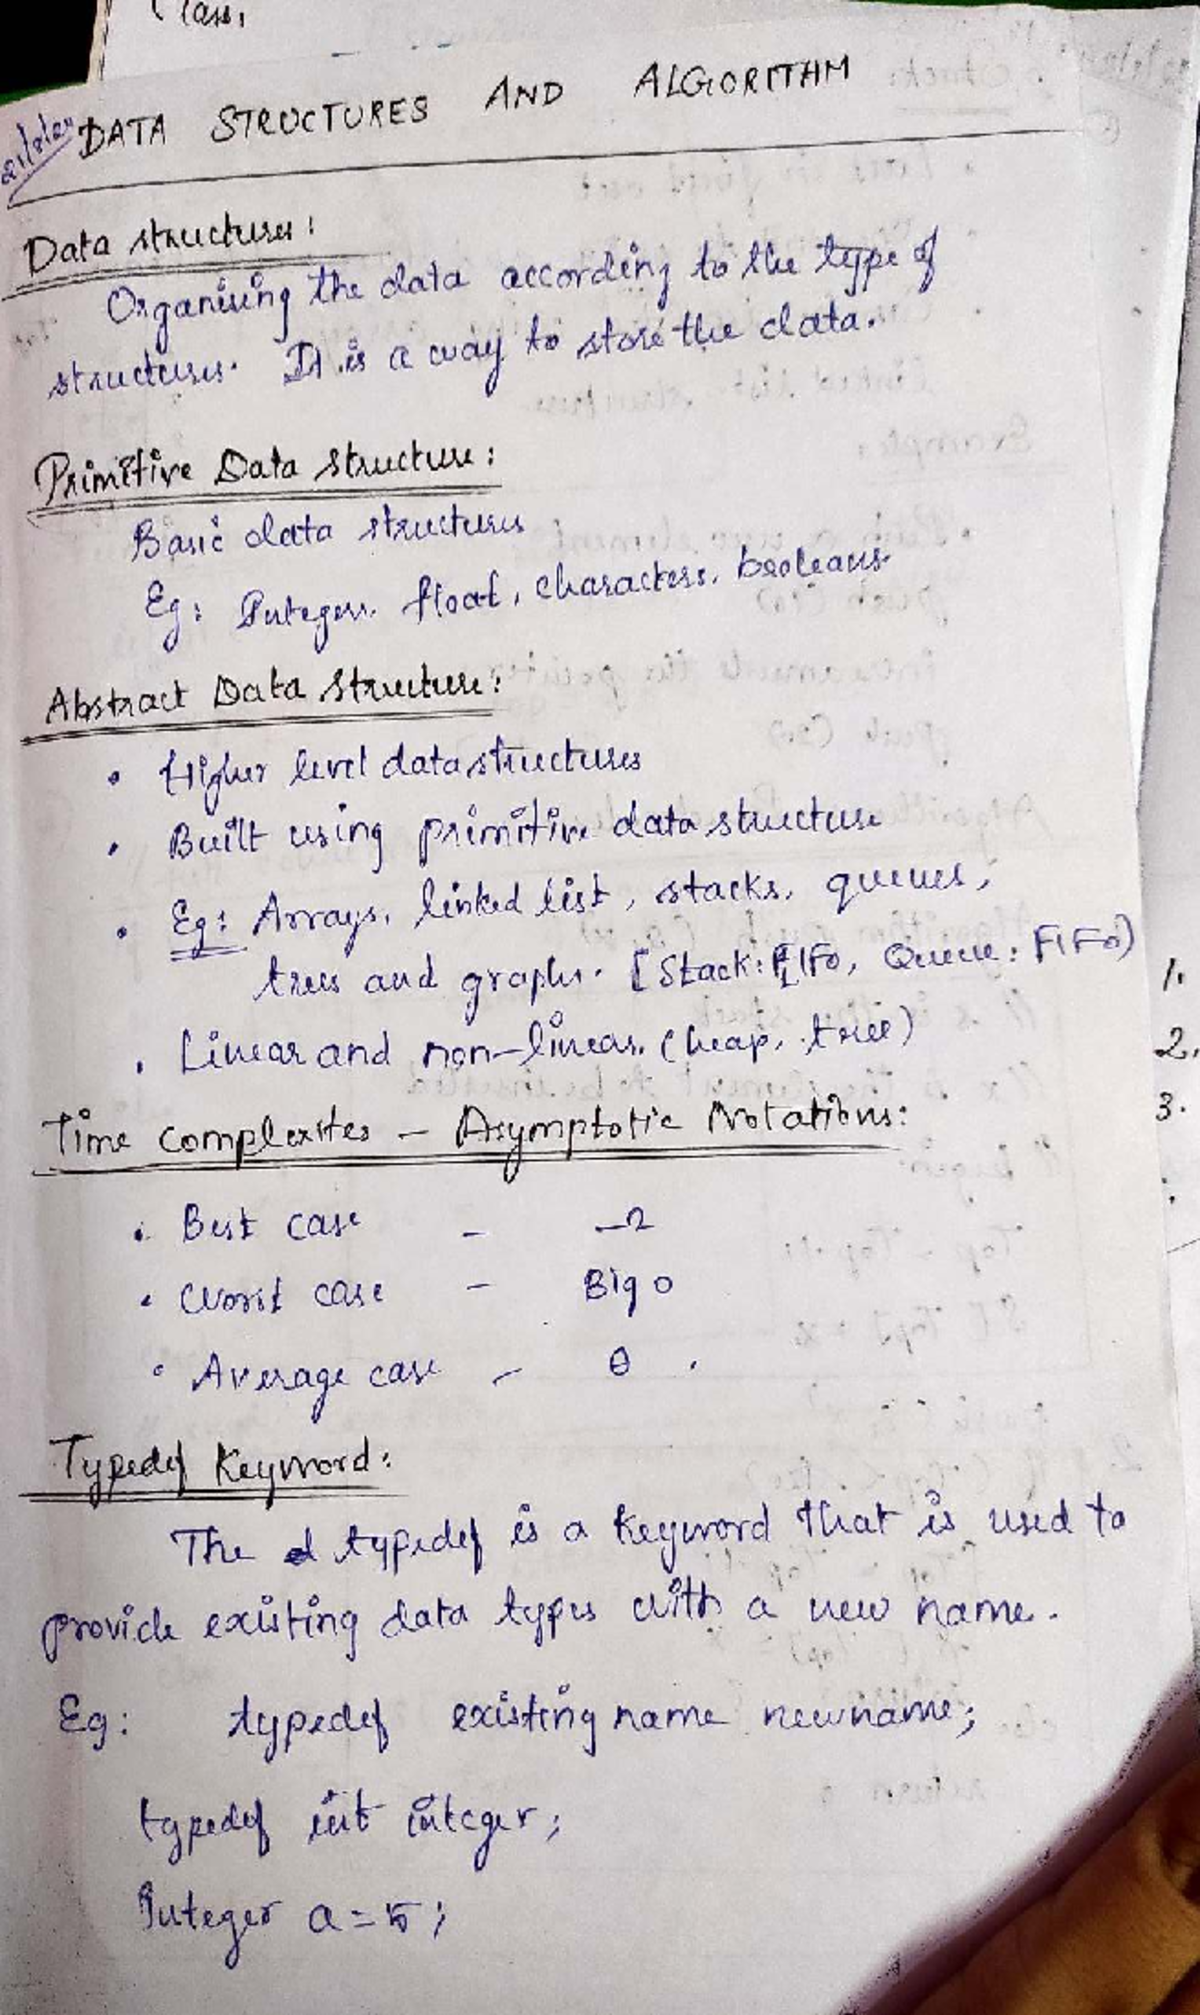 Class,
DATA STRUCTURES AND ALGORITHM
Data structures:
Organising the data according to the type of
structures. It is a way to store the data.
Primitive Data structure:
Basic data structures
Eg: Integers, float, characters, booleans.
Abstract Data structure:
• Higher level data structures
• Built using primitive data structure
• Eg: Arrays, linked list, stacks, queues,
trees and graphs. [Stack: LIFO, Queue: FIFO)
• Linear and non-linear. (heap, tree)
Time complexites - Asymptotic Notations:
• Best case - Ω
• Worst case - Big o
• Average case - θ.
Typedef Keyword:
The typedef is a keyword that is used to
provide existing data types with a new name.
Eg: typedef existing name newname;
typedef int integer;
Integer a = 5;
1.
2.
3.